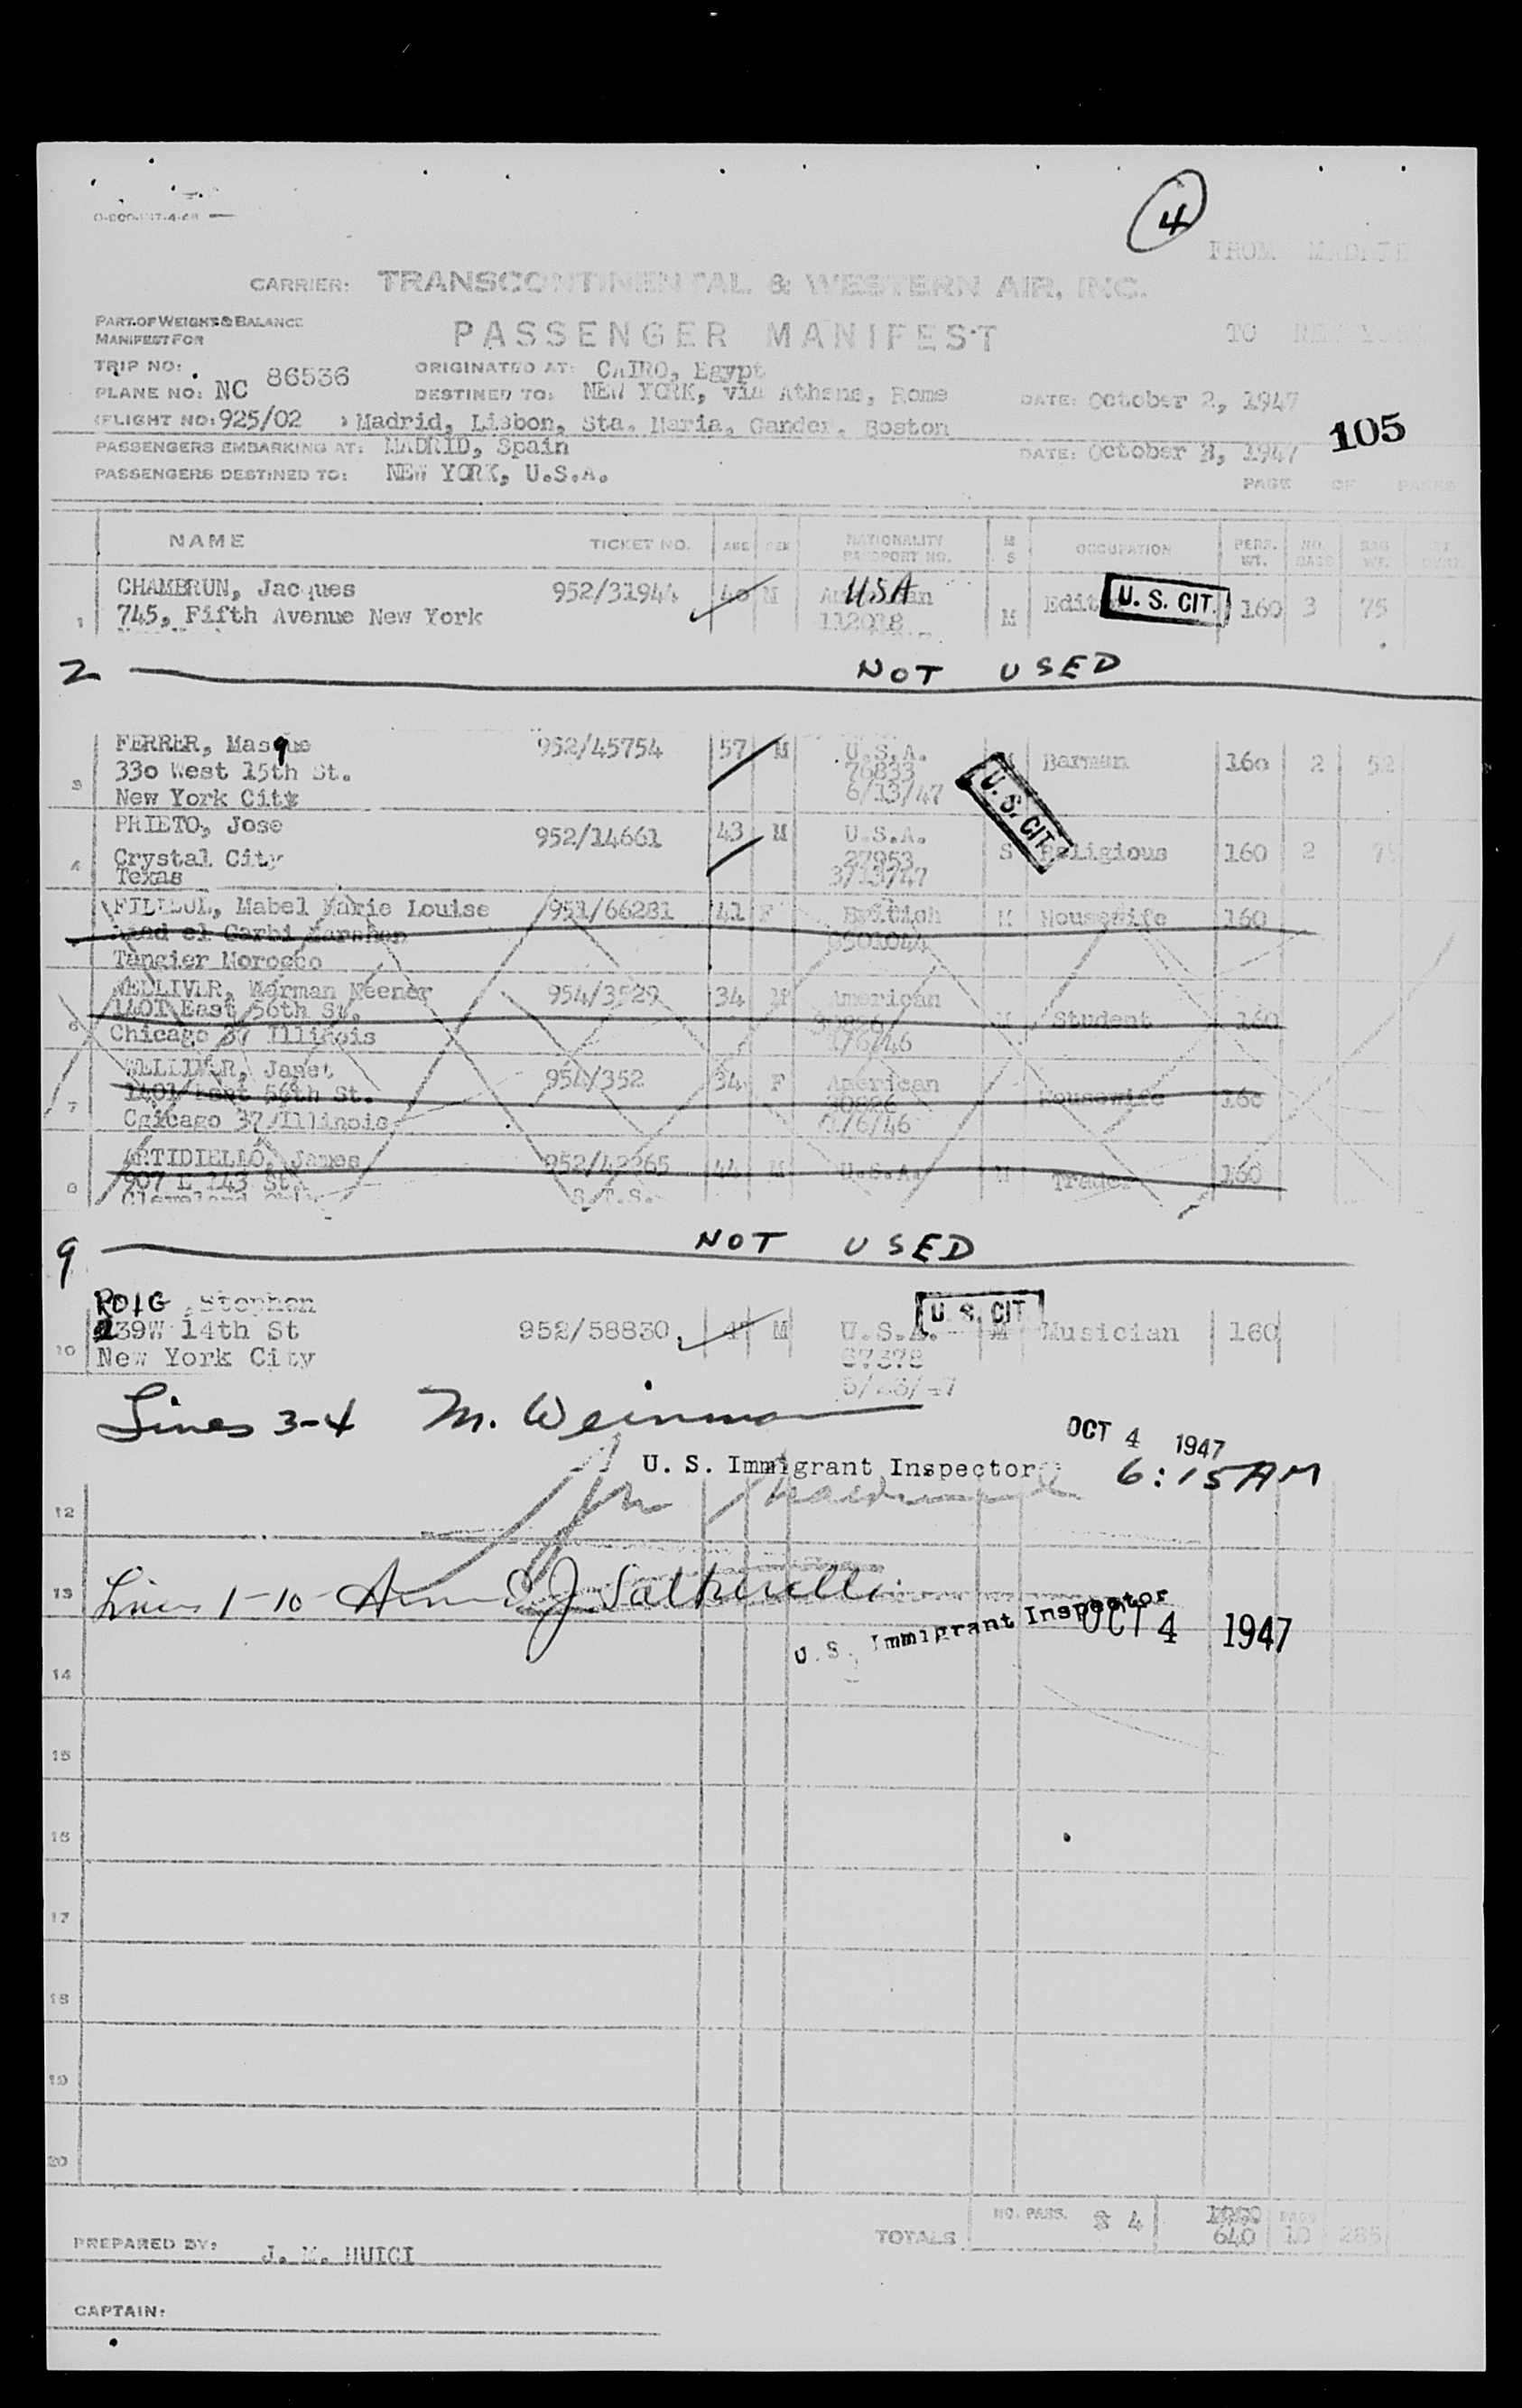 4
FROM MADRID
CARRIER: TRANSCONTINENTAL & WESTERN AIR, INC.
PART OF WEIGHT & BALANCE
MANIFEST FOR
PASSENGER MANIFEST
TO NEW YORK
TRIP NO:
ORIGINATED AT: CAIRO, Egypt
PLANE NO: NC 86536
DESTINED TO: NEW YORK, via Athens, Rome
DATE: October 2, 1947
(FLIGHT NO: 925/02 ) Madrid, Lisbon, Sta. Maria, Gander, Boston
105
PASSENGERS EMBARKING AT: MADRID, Spain
DATE: October 3, 1947
PASSENGERS DESTINED TO: NEW YORK, U.S.A.
PAGE OF PAGES
NAME TICKET NO. AGE SEX NATIONALITY PASSPORT NO. M S OCCUPATION PERS. WT. NO. BAGS BAG WT.
CHAMBRUN, Jacques 952/31944 40 M USA U. S. CIT. 160 3 75
1 745, Fifth Avenue New York 112018 M
2 NOT USED
FERRER, Masque 952/45754 57 M U.S.A. M Barman 160 2 52
330 West 15th St. 76833
3 New York City 6/13/47
U. S. CIT.
PRIETO, Jose 952/14661 43 M U.S.A.
Crystal City 27953 S Religious 160 2
4 Texas 3/13/47
Mabel Marie Louise 951/66281 41 F British M Housewife 160
el Garbi Marshan
Tangier Morocco
Werman Keener 954/3529 34 M American
6 1401 East 56th St. 30826 M Student 160
Chicago 37 Illinois /6/46
Janet 954/352 34 F American
1401 East 56th St. 30826 Housewife 160
7 Cgicago 37 Illinois /6/46
ARTIDIELLO, James 952/42265 44 M U.S.A. M Trader 160
8 907 E 143 St. S.T.S.
Cleveland Ohio
9 NOT USED
ROIG, Stephen U. S. CIT
239W 14th St 952/58830 47 M U.S.A. M Musician 160
10 New York City 67378
Lines 3-4 M. Weinman
OCT 4 1947
U. S. Immigrant Inspector 6:15 AM
12
13 Lines 1-10
U. S. Immigrant Inspector OCT 4 1947
14
15
16
17
18
19
20
TOTALS NO. PASS. 8 4 640 BAGS 10 285
PREPARED BY: J. M. HUICI
CAPTAIN: